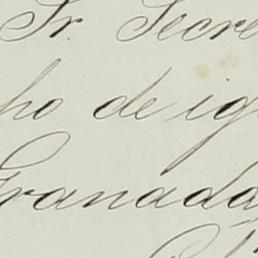 Sr. Secre
ho de ig
Granada